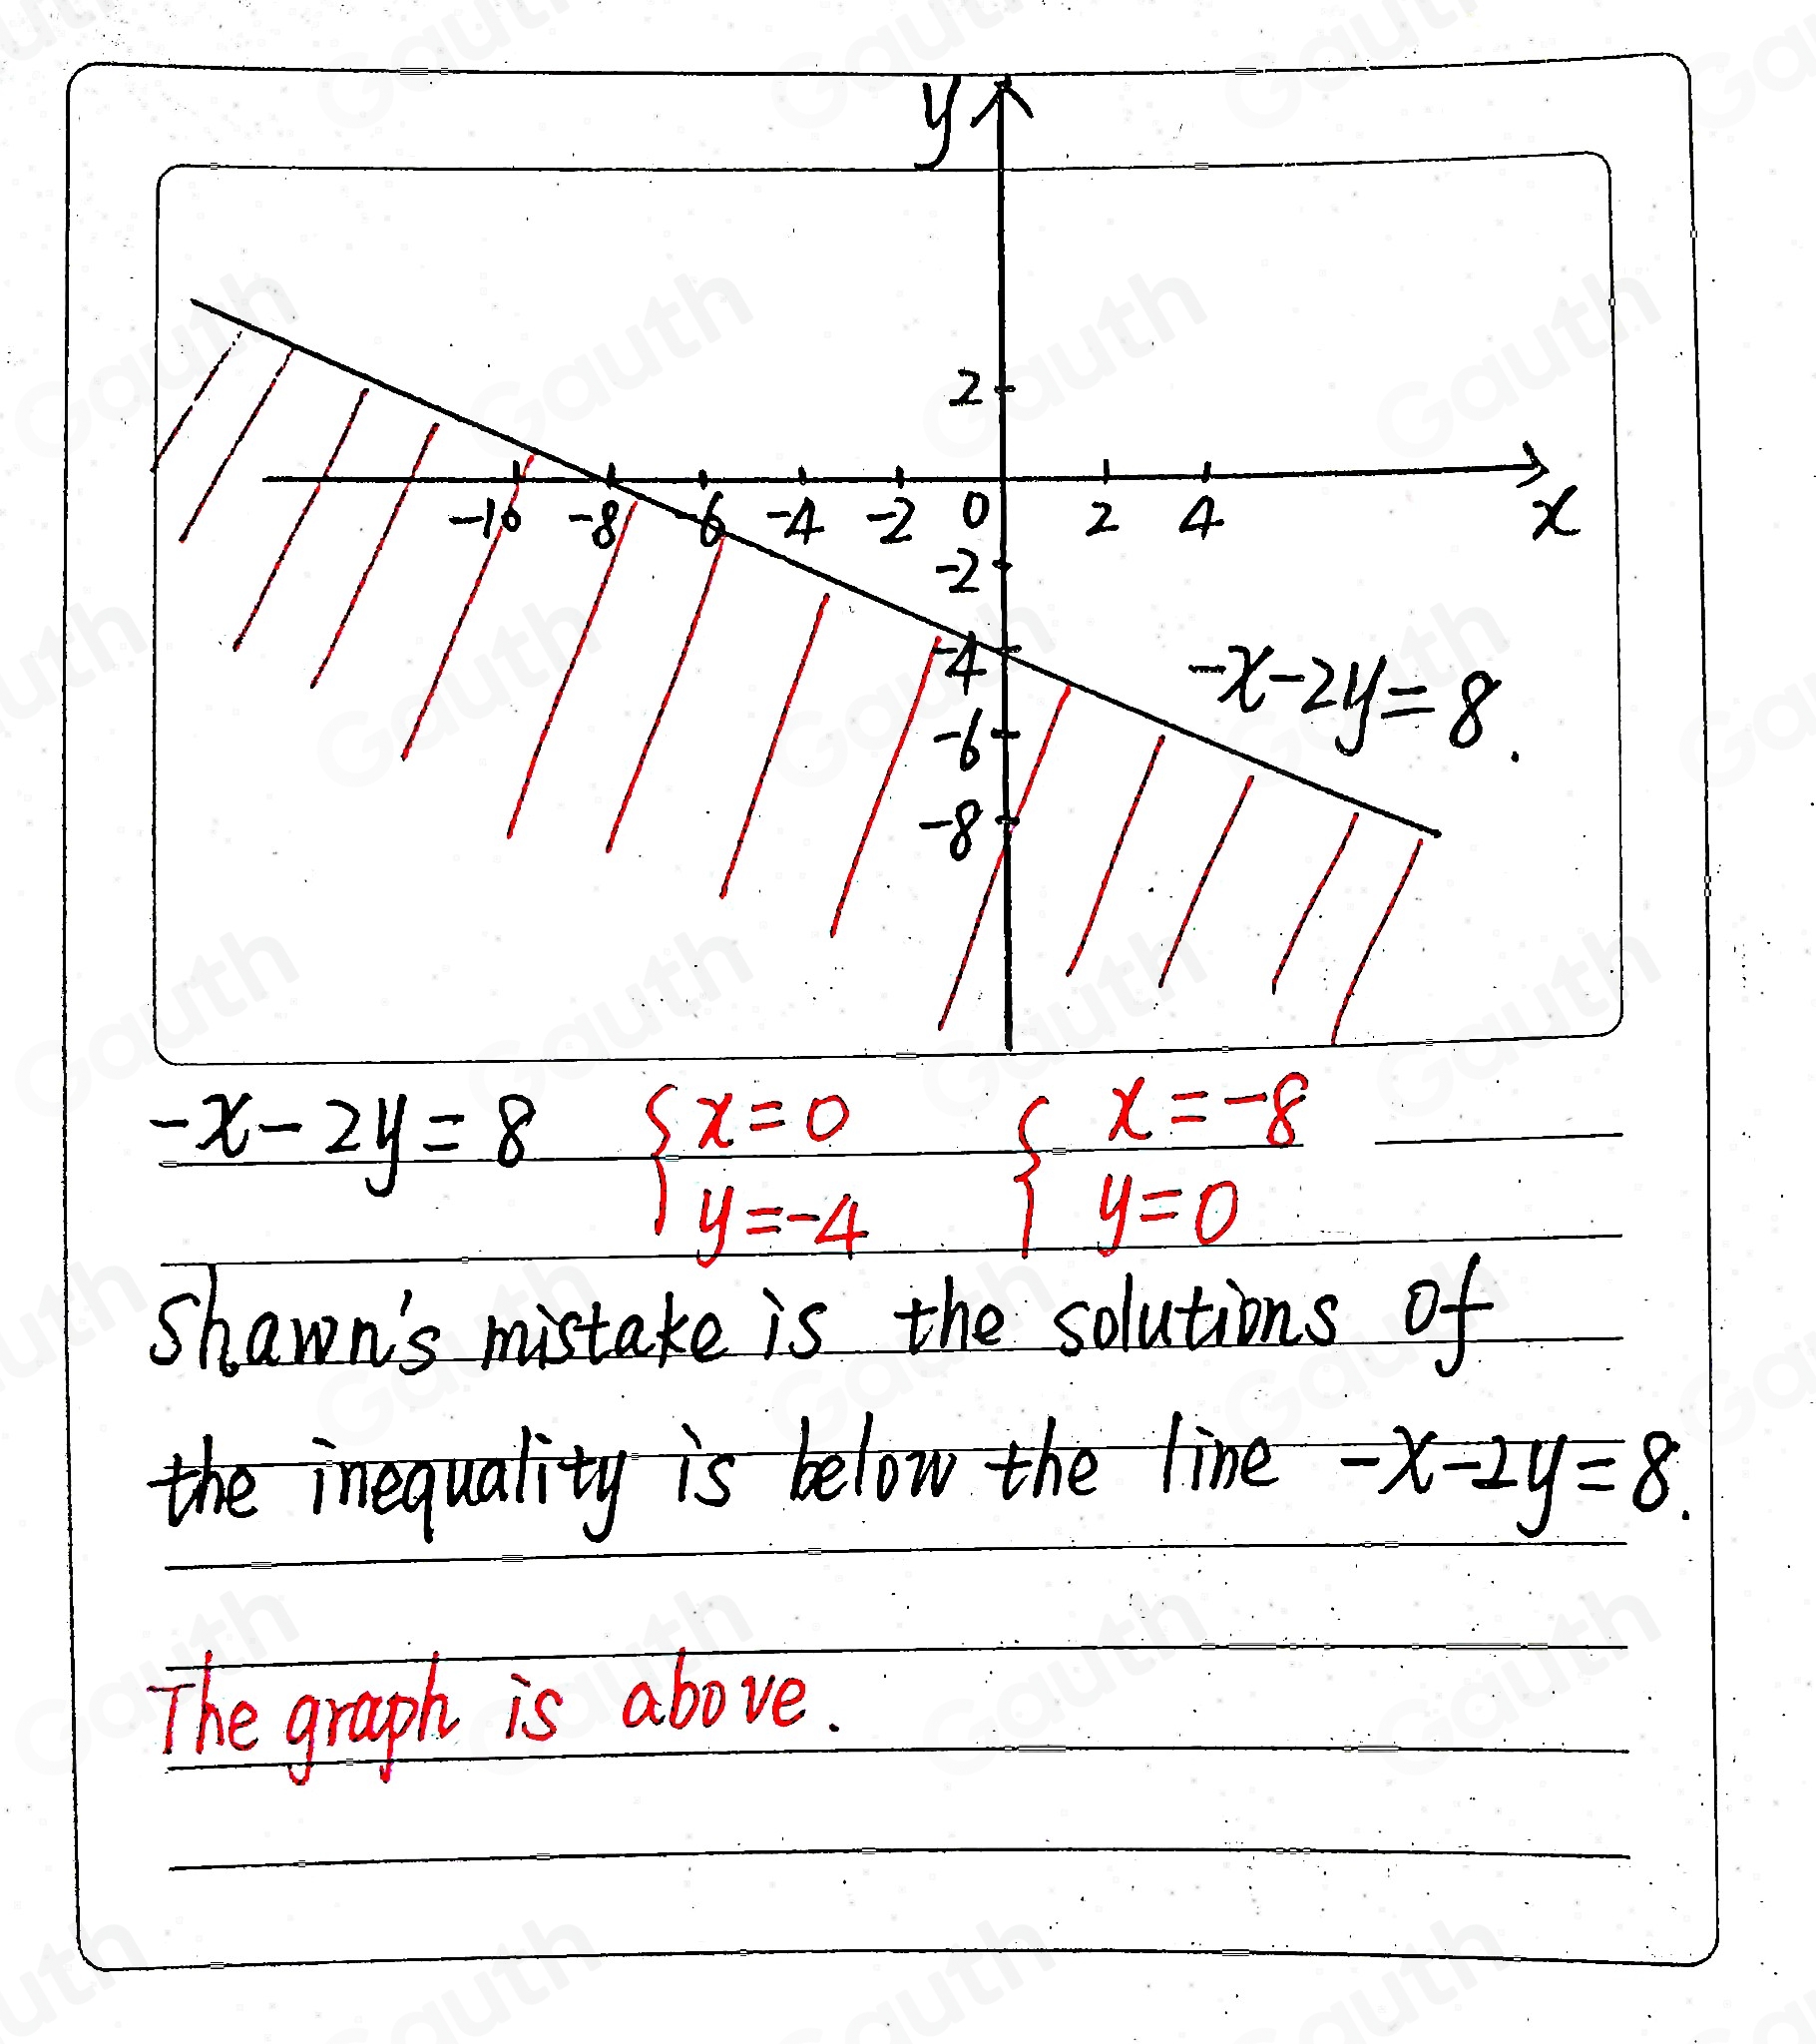 y
2
-10 -8 -6 -4 -2 0 2 4 x
-2
-4
-x-2y=8.
-6
-8
-x-2y=8 {x=0 {x=-8
y=-4 y=0
Shawn's mistake is the solutions of
the inequality is below the line -x-2y=8.
The graph is above.
Gauth